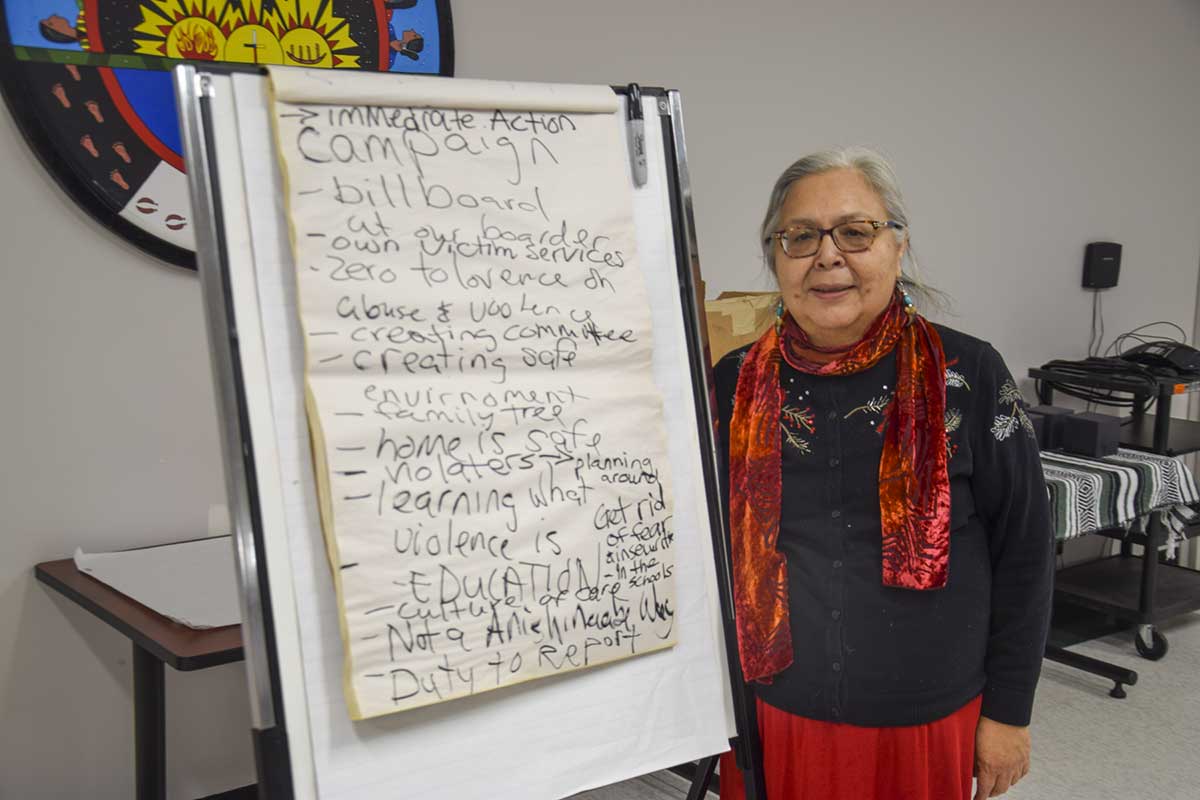 -> immediate Action
Campaign
- billboard
at our boarder
- own victim services
- Zero tolorence on
abuse &
- creating committee
- creating safe
envirnoment
- family tree
- home is safe
- violaters -> planning
around
- learning what
violence is
Get rid
of fear
- EDUCATION
- in the
schools
- culture
- Not a Anishinaabe Way
- Duty to Report